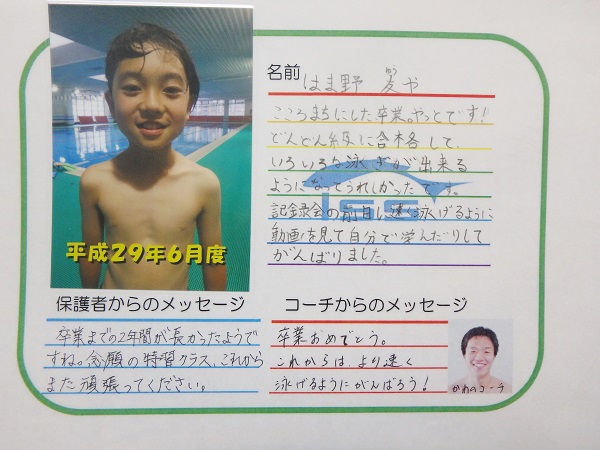 平成29年6月度
名前 はま野 夏や
こころまちにした卒業。やっとです!
どんどん級に合格して、
いろいろな泳ぎが出来る
ようになってうれしかったです。
記録会の前日に速く泳げるように
動画を見て自分で学んだりして
がんばりました。
ISS
保護者からのメッセージ
卒業までの2年間が長かったようで
すね。念願の特習クラス、これから
また頑張ってください。
コーチからのメッセージ
卒業おめでとう。
これからは、より速く
泳げるようにがんばろう!
かわのコーチ